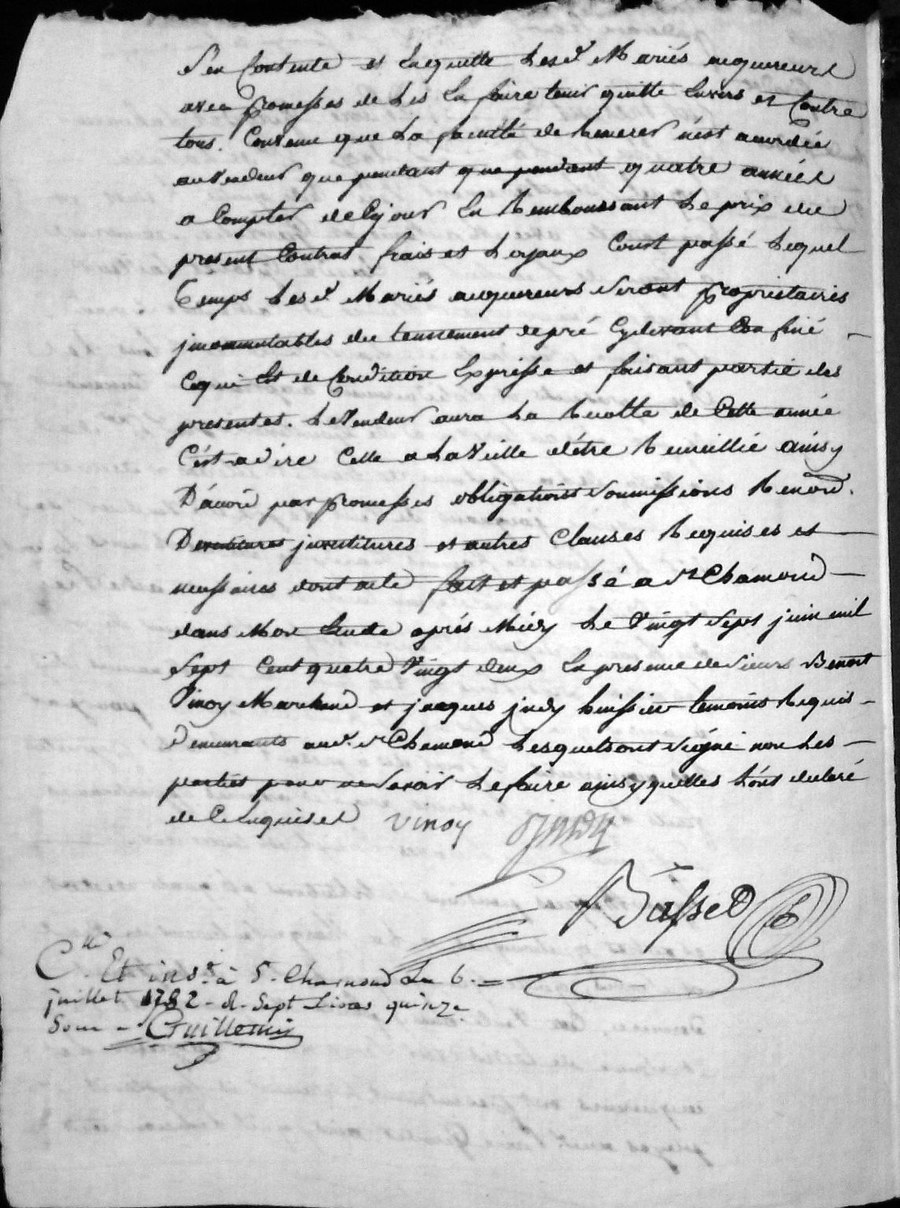 s'en Contente et En quitte Les d. Mariés acquereurs
avec promesses de Les En faire tenir quitte Envers et Contre
tous. Convenu que La faculté de Remerer n'est accordée
au Vendeur que pendant que pendant quatre années
a Compter de Ce jour En Remboursant Le prix du
present Contrat frais et Loyaux Coust passé Lequel
temps Les d. Mariés acquereurs seront proprietaires
jncommutables du tennement de pré Cydevant Confiné
Ce qui Est de Condition Expresse et faisant partie des
presentes. Le Vendeur aura La Recolte de Cette année
C'est a dire Celle a La Veille d'être Recueillie ainsy
D'accord par promesses obligations soumissions Renon.
Devestitures jnvestitures et autres Clauses Requises et
necessaires dont acte fait et passé a St Chamond
dans Mon Etude aprés Midy Le Vingt sept juin mil
sept Cent quatre Vingt deux En presence de sieurs Benoit
Vinoy Marchand et jacques jurdy huissier temoins Requis
demeurants aud. St Chamond Lesquels ont signé non Les
parties pour ne savoir Le faire ainsy quelles L'ont declaré
de Ce Enquises Vinoy Jurdy
Basset
C.lé Et ins. à St. Chamond Le 6.
juillet 1782 - R. Sept Livres quinze
Sous - Guillemin